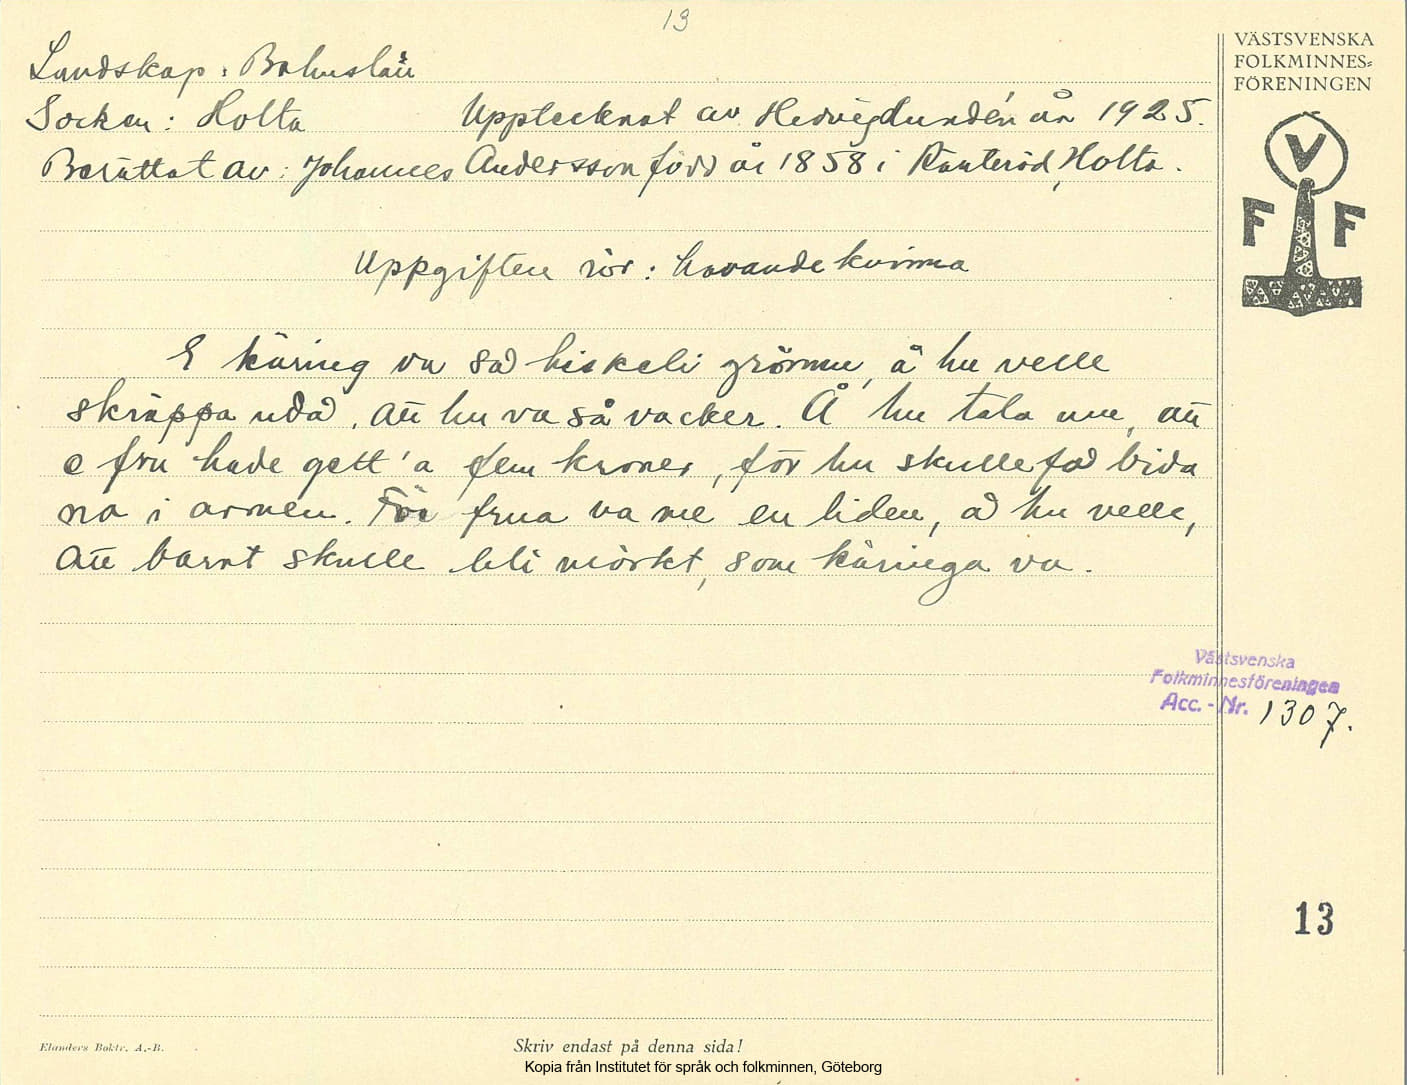 13
Landskap: Bohuslän
Socken: Holta Upptecknat av Hedvig Lundén år 1925.
Berättat av: Johannes Andersson född år 1858 i Ranteröd, Holta.
Uppgiften rör: havande kvinna
E käring va så hiskeli grömme, å hu velle
skräppa udå, att hu va så vacker. Å hu tala me, att
e fru hade gett 'a fem kroner, för hu skulle få bida
na i armen. För frua va me en liden, å hu velle,
att barnt skulle bli mörkt, som käringa va.
VÄSTSVENSKA
FOLKMINNES-
FÖRENINGEN
V
F F
Västsvenska
Folkminnesföreningen
Acc.-Nr. 1307.
13
Elanders Boktr. A.-B.
Skriv endast på denna sida!
Kopia från Institutet för språk och folkminnen, Göteborg